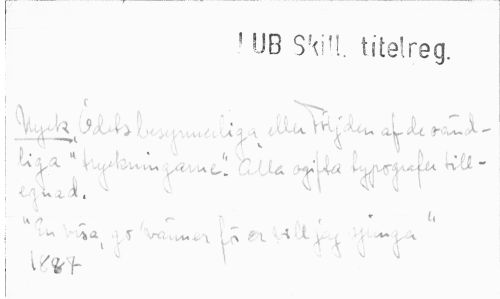 LUB Skill. titelreg.
Nyck, Ödets besynnerliga eller Följden af de oänd-
liga "tryckningarne". Alla ogifta typografer till-
egnad.
"En visa, go' vänner för er vill jag sjunga"
1887